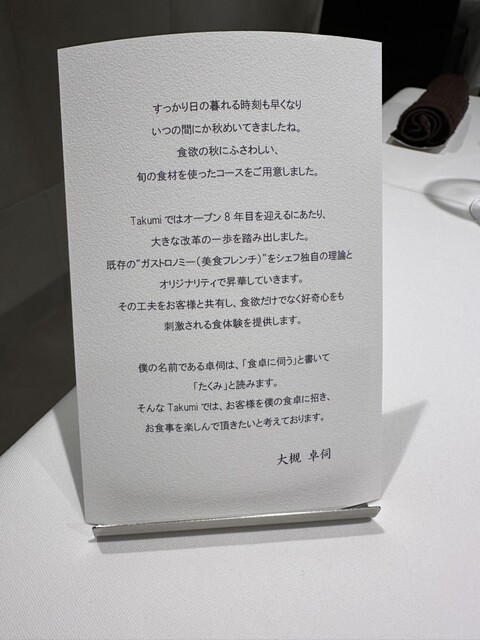 すっかり日の暮れる時刻も早くなり
いつの間にか秋めいてきましたね。
食欲の秋にふさわしい、
旬の食材を使ったコースをご用意しました。
Takumiではオープン8年目を迎えるにあたり、
大きな改革の一歩を踏み出しました。
既存の“ガストロノミー(美食フレンチ)”をシェフ独自の理論と
オリジナリティで昇華していきます。
その工夫をお客様と共有し、食欲だけでなく好奇心をも
刺激される食体験を提供します。
僕の名前である卓伺は、「食卓に伺う」と書いて
「たくみ」と読みます。
そんなTakumiでは、お客様を僕の食卓に招き、
お食事を楽しんで頂きたいと考えております。
大槻 卓伺